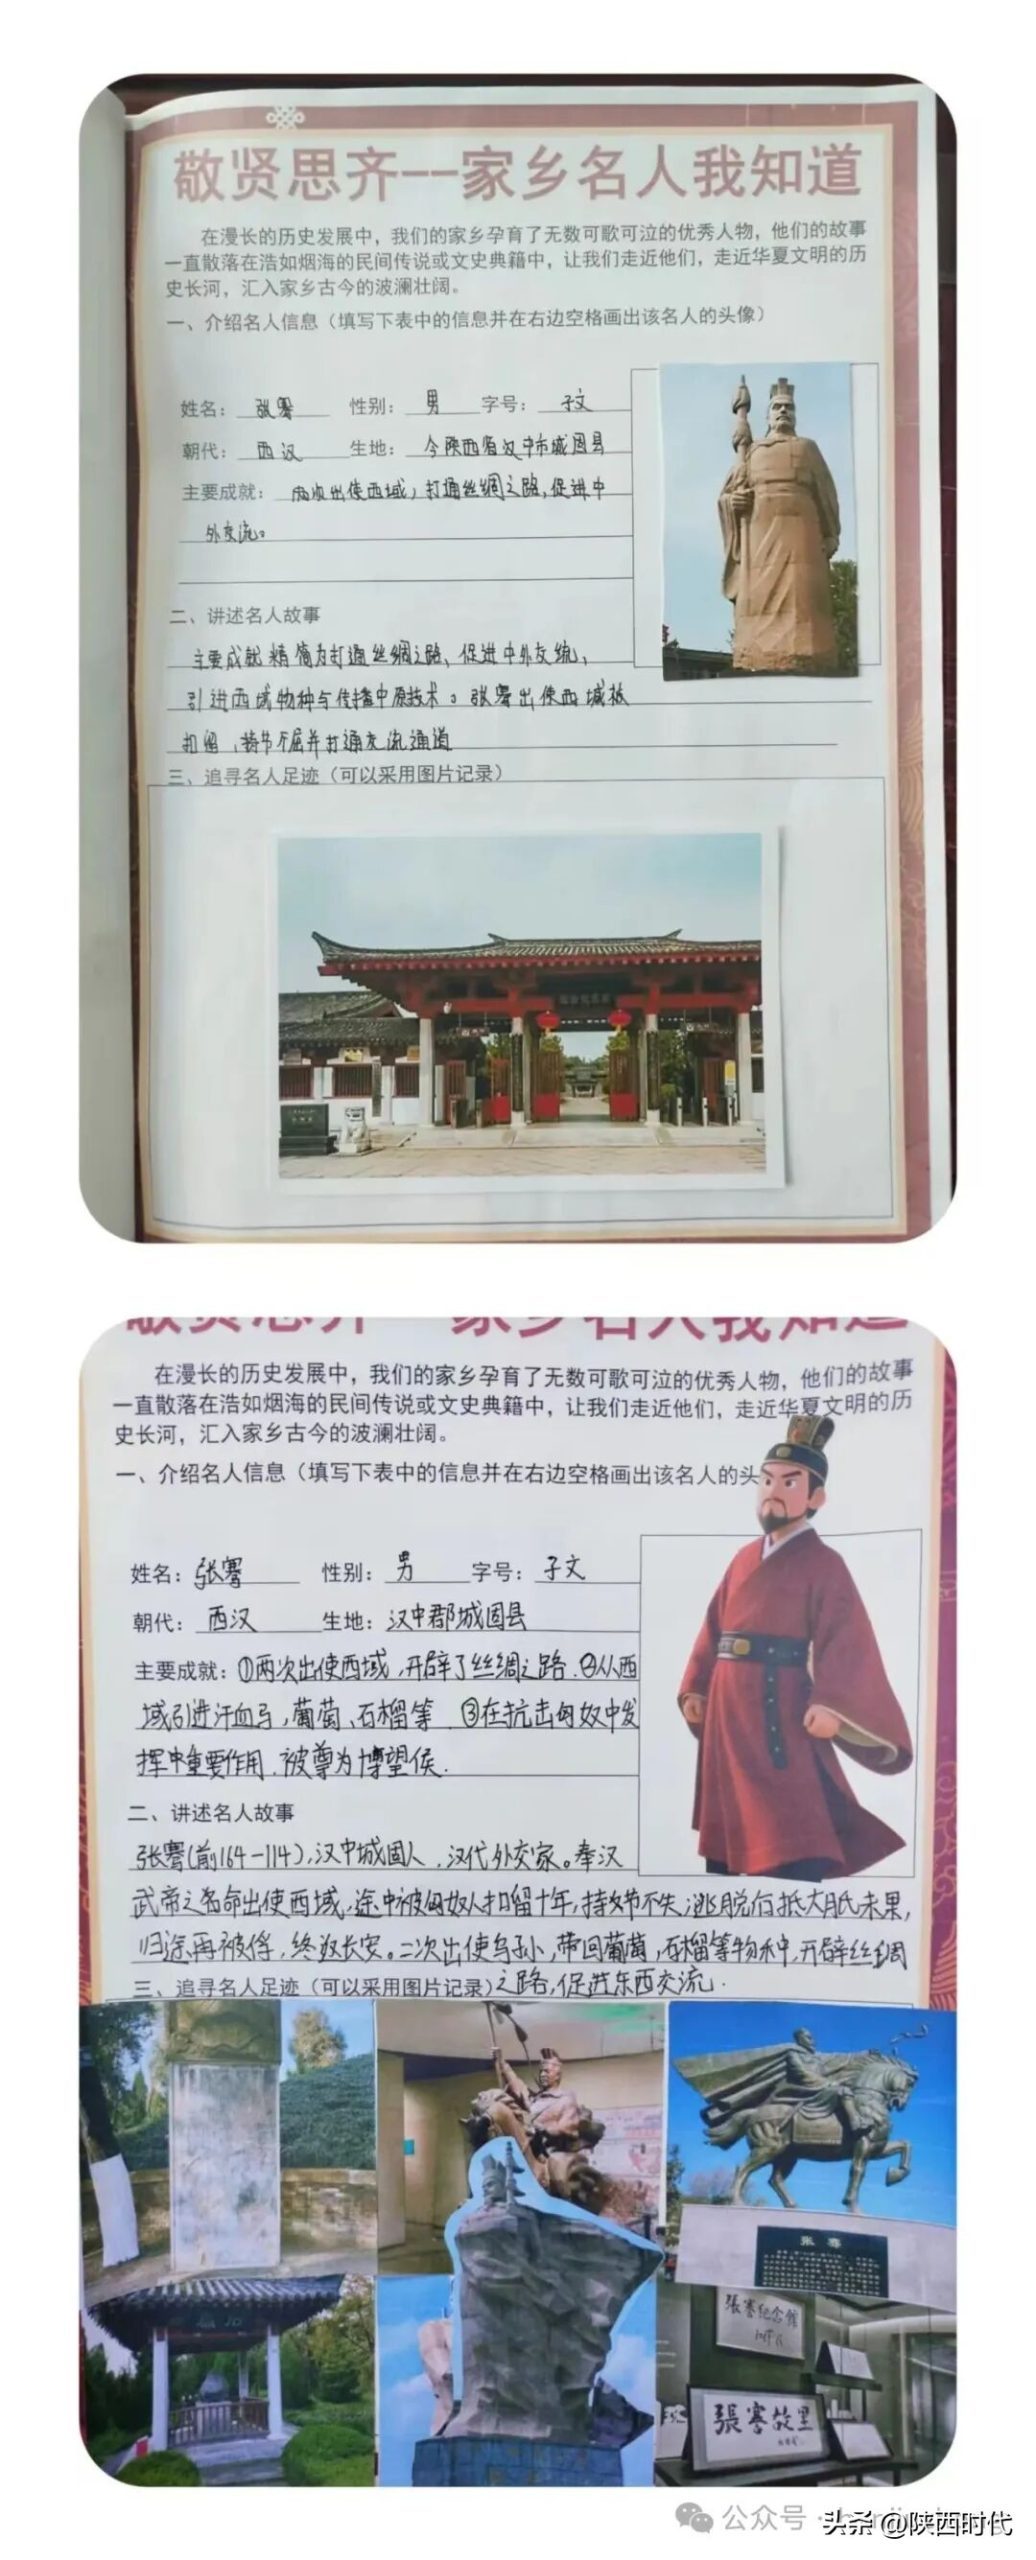 敬贤思齐——家乡名人我知道
在漫长的历史发展中，我们的家乡孕育了无数可歌可泣的优秀人物，他们的故事
一直散落在浩如烟海的民间传说或文史典籍中，让我们走近他们，走近华夏文明的历
史长河，汇入家乡古今的波澜壮阔。
一、介绍名人信息（填写下表中的信息并在右边空格画出该名人的头像）
姓名：张骞 性别：男 字号：子文
朝代：西汉 生地：今陕西省汉中市城固县
主要成就：两次出使西域，打通丝绸之路，促进中
外交流。
二、讲述名人故事
主要成就精简为打通丝绸之路、促进中外交流、
引进西域物种与传播中原技术。张骞出使西域被
扣留，持节不屈并打通交流通道
三、追寻名人足迹（可以采用图片记录）
敬贤思齐——家乡名人我知道
在漫长的历史发展中，我们的家乡孕育了无数可歌可泣的优秀人物，他们的故事
一直散落在浩如烟海的民间传说或文史典籍中，让我们走近他们，走近华夏文明的历
史长河，汇入家乡古今的波澜壮阔。
一、介绍名人信息（填写下表中的信息并在右边空格画出该名人的头
姓名：张骞 性别：男 字号：子文
朝代：西汉 生地：汉中郡城固县
主要成就：①两次出使西域，开辟了丝绸之路.②从西
域引进汗血马，葡萄、石榴等.③在抗击匈奴中发
挥中重要作用.被尊为博望侯.
二、讲述名人故事
张骞(前164-114)，汉中城固人，汉代外交家。奉汉
武帝之名命出使西域，途中被匈奴人扣留十年，持节不失，逃脱后抵大月氏未果，
归途再被俘，终返长安。二次出使乌孙，带回葡萄，石榴等物种，开辟丝绸
三、追寻名人足迹（可以采用图片记录）之路，促进东西交流.
张骞
張騫纪念馆
張騫故里
公众号
头条 @陕西时代